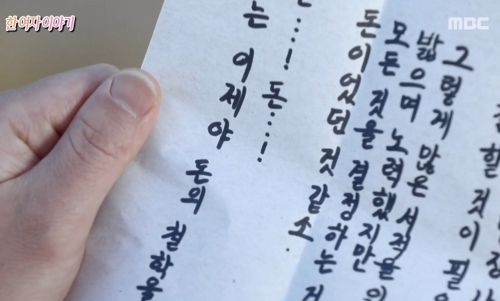 한 여자 이야기
MBC
것이 필
그렇게 많은 서적을
밟으며 노력했지만
모든 것을 결정하는
돈이었던 것 같소.
…! 돈…!
는 이제야 돈의 철학을